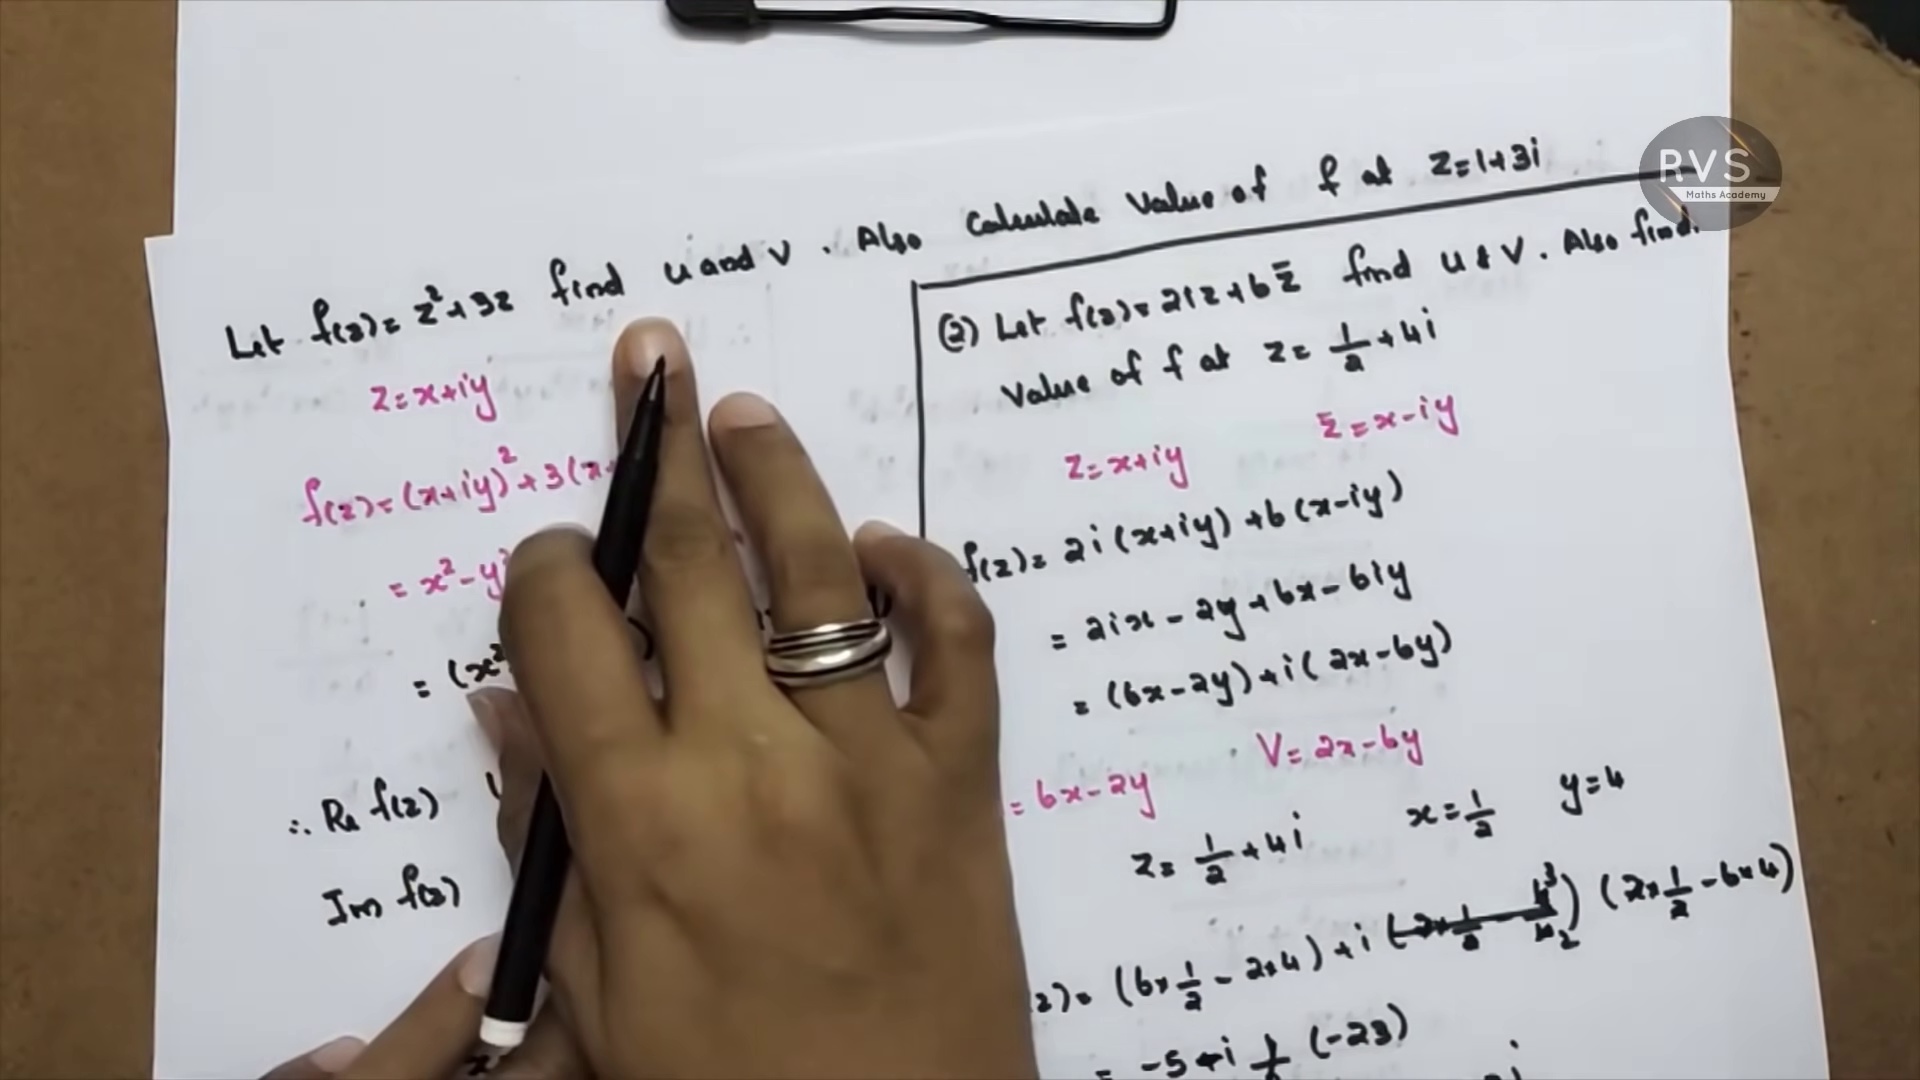 Let f(z) = z² + 3z find u and v. Also Calculate Value of f at z = 1+3i
z = x+iy
f(z) = (x+iy)² + 3(x+
= x² - y²
= (x²
∴ Re f(z)
Im f(z)
x
(2) Let f(z) = 2iz + 6z̄ find u & v. Also find
Value of f at z = 1/2 + 4i
z = x+iy z̄ = x-iy
f(z) = 2i(x+iy) + 6(x-iy)
= 2ix - 2y + 6x - 6iy
= (6x-2y) + i(2x-6y)
= 6x-2y V = 2x-6y
z = 1/2 + 4i x = 1/2 y = 4
z) = (6×1/2 - 2×4) + i (2×1/2 - 6×4)
= -5 + i (-23)
RVS
Maths Academy